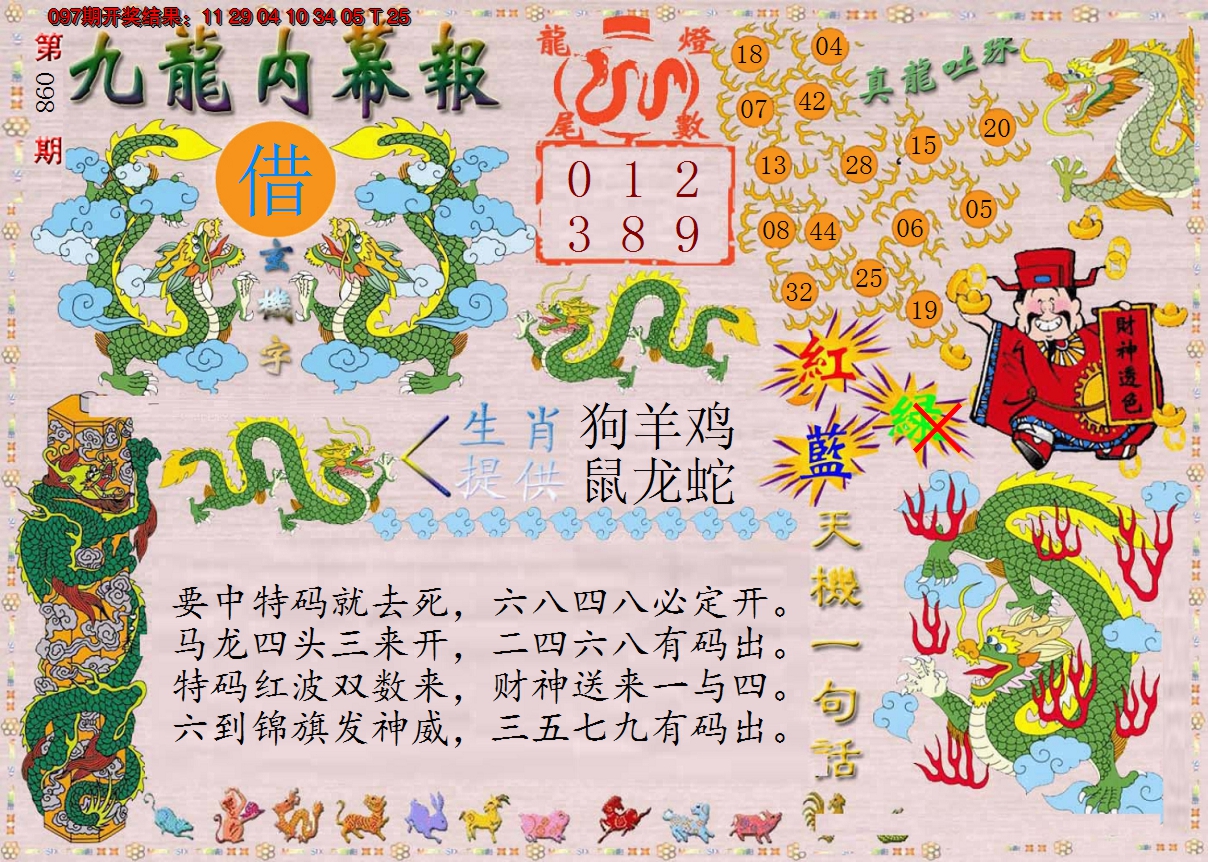 097期开奖结果：11 29 04 10 34 05 T 25
第
098
期
九龍内幕報
借
玄
機
字
龍
燈
尾
數
0 1 2
3 8 9
真龍吐珠
18
04
07
42
13
28
15
20
08
44
06
05
32
25
19
財神透色
紅
綠
藍
生肖
提供
狗羊鸡
鼠龙蛇
天機一句話
要中特码就去死，六八四八必定开。
马龙四头三来开，二四六八有码出。
特码红波双数来，财神送来一与四。
六到锦旗发神威，三五七九有码出。